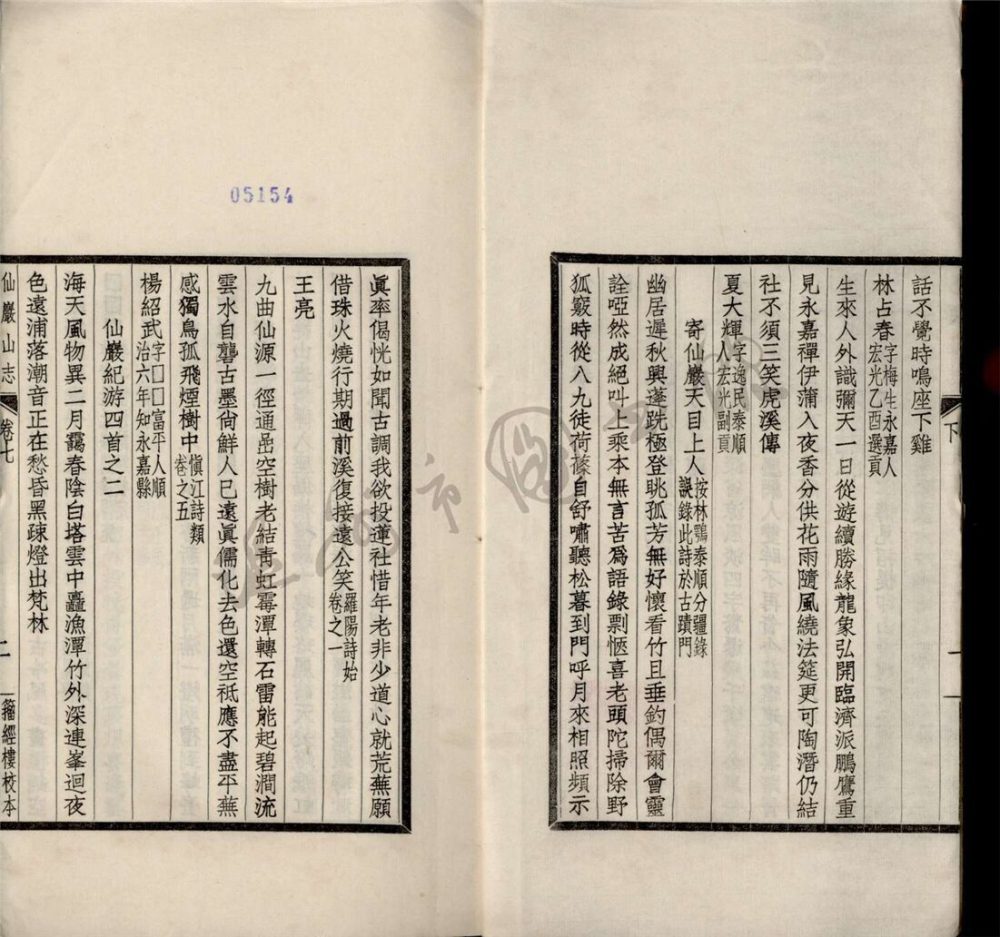 話不覺時鳴座下雞
林占春字梅生永嘉人宏光乙酉選貢
生來人外識彌天一日從遊續勝緣龍象弘開臨濟派鵬鷹重
見永嘉禪伊蒲入夜香分供花雨隨風繞法筵更可陶潛仍結
社不須三笑虎溪傳
夏大輝字逸民泰順人宏光副貢
寄仙巖天目上人按林鶚泰順分疆錄誤錄此詩於古蹟門
幽居遲秋興蓬跣極登眺孤芳無好懷看竹且垂釣偶爾會靈
詮啞然成絕叫上乘本無言苦爲語錄剽愜喜老頭陀掃除野
狐竅時從八九徒荷蓧自舒嘯聽松暮到門呼月來相照頻示
下
一
眞率偈恍如聞古調我欲投蓮社惜年老非少道心就荒蕪願
借珠火燒行期過前溪復接遠公笑羅陽詩始卷之一
王亮
九曲仙源一徑通嵒空樹老結靑虹霉潭轉石雷能起碧澗流
雲水自聾古墨尙鮮人已遠眞儒化去色還空祗應不盡平蕪
感獨鳥孤飛煙樹中愼江詩類卷之五
楊紹武字□□富平人順治六年知永嘉縣
仙巖紀游四首之二
海天風物異二月靄春陰白塔雲中矗漁潭竹外深連峯迴夜
色遠浦落潮音正在愁昏黑疎燈出梵林
仙巖山志
卷七
二
籀經樓校本
05154